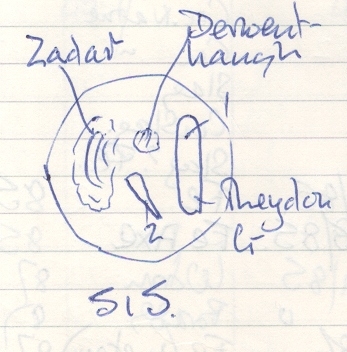 Zadar
Derwent-
haugh
1
Theydon
Gt
2
S.S.